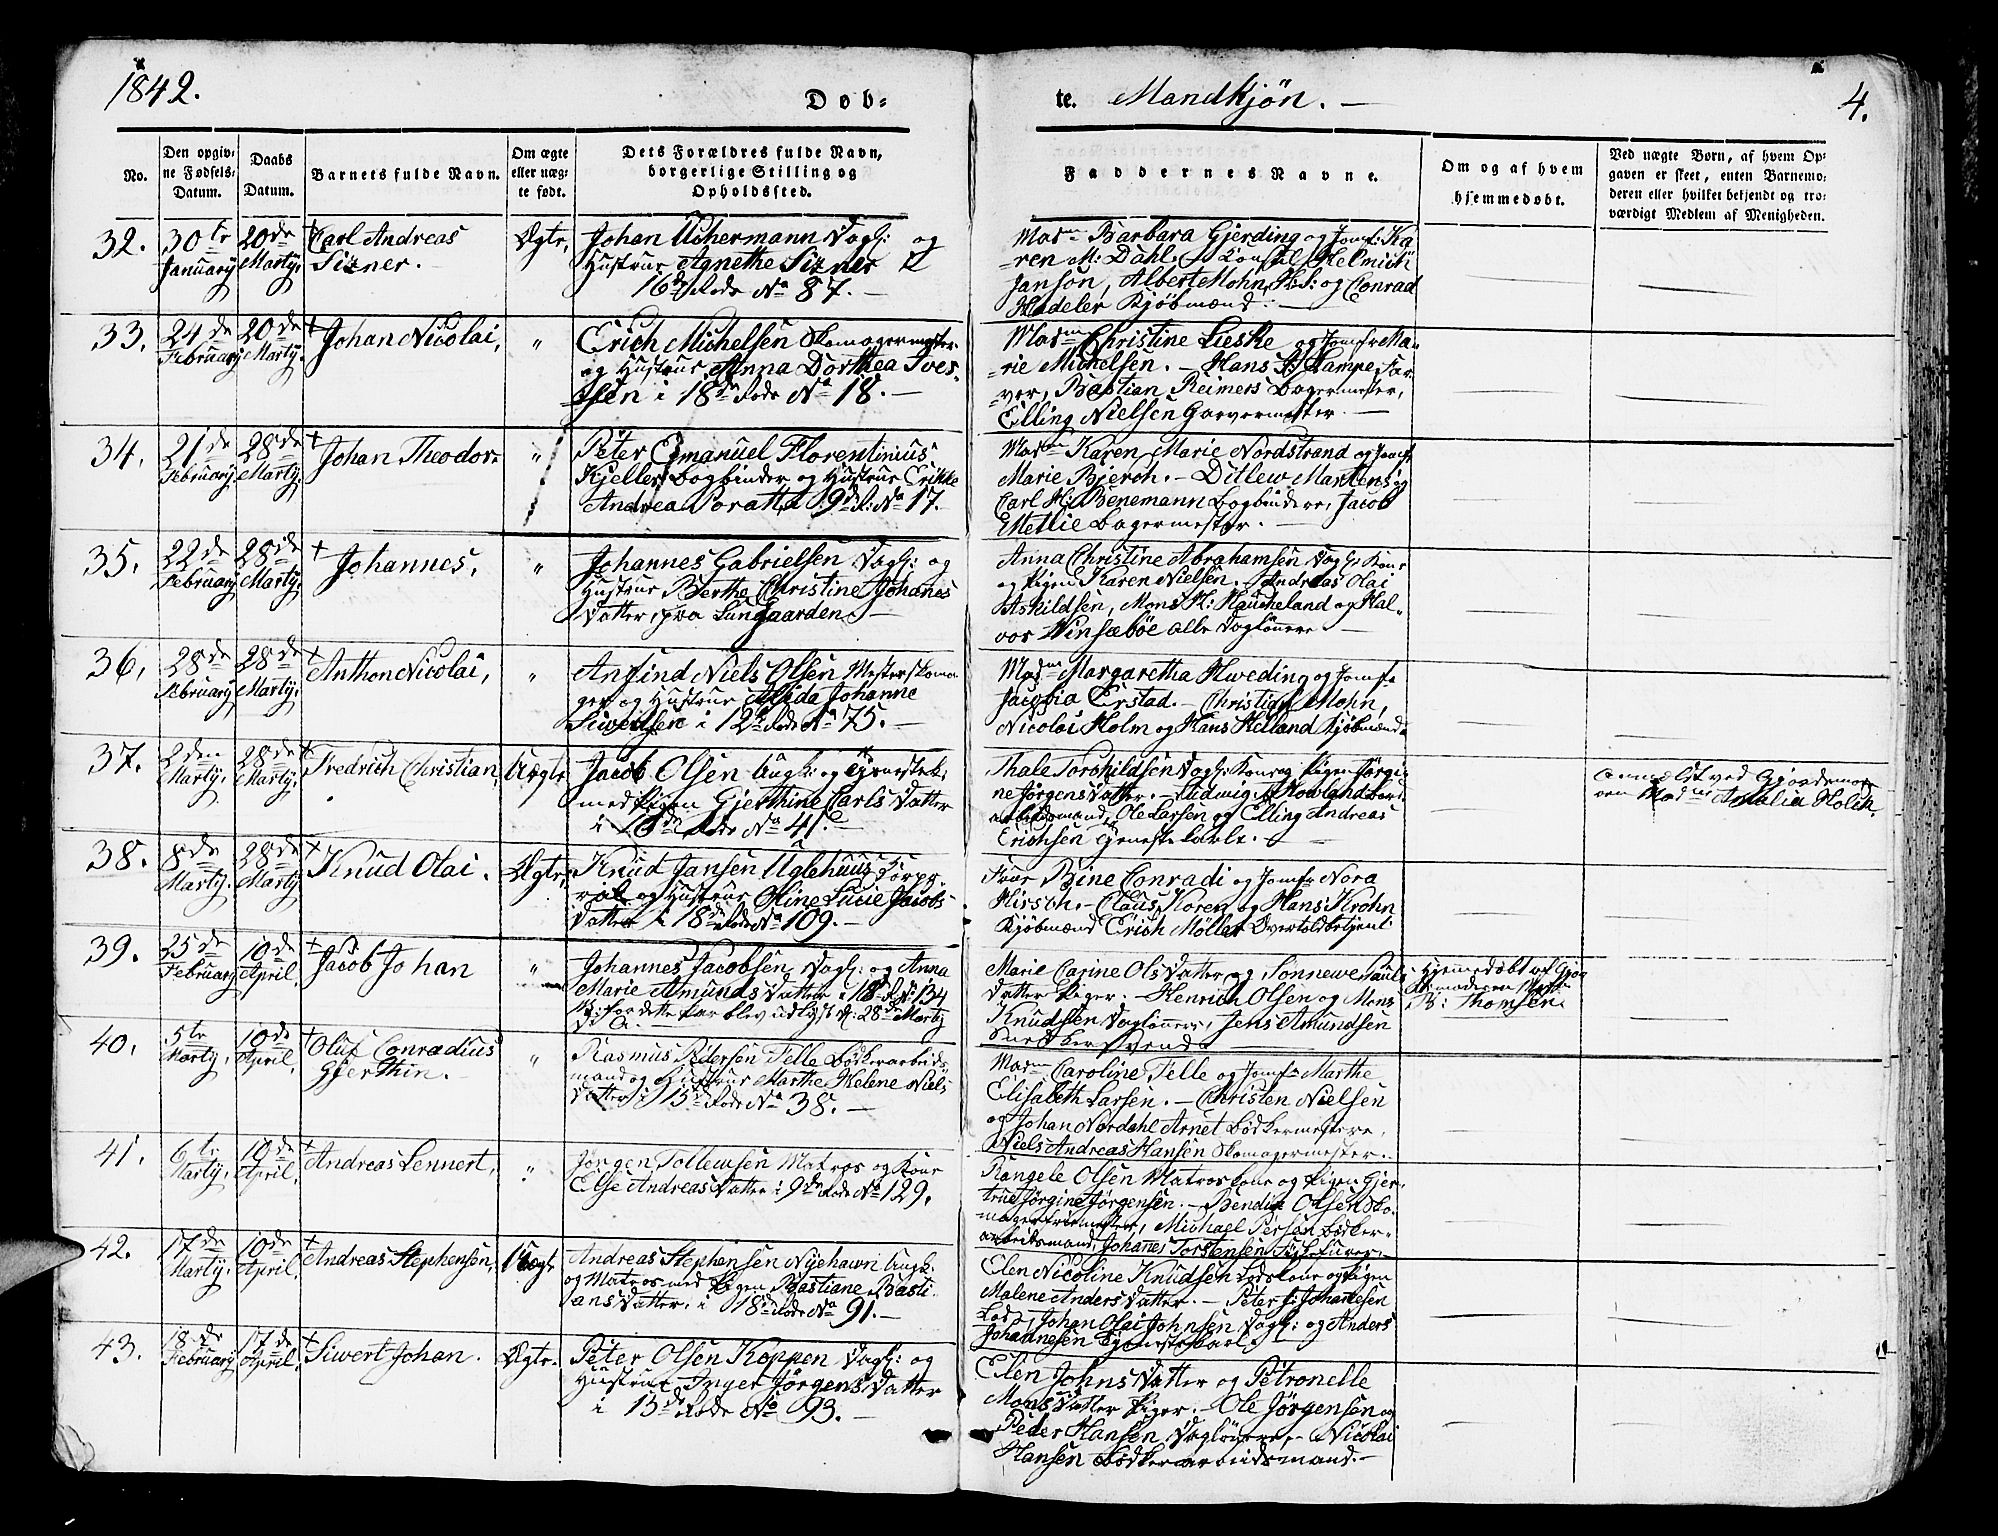 1842.
Døb-
te. Mandkjön. —
4.
No.
Den opgiv-
ne Fødsels-
Datum.
Daabs
Datum.
Barnets fulde Navn.
Om ægte
eller uæg-
te født.
Dets Forældres fulde Navn,
borgerlige Stilling og
Opholdssted.
Faddernes Navne.
Om og af hvem
hjemmedøbt.
Ved uægte Børn, af hvem Op-
gaven er skeet, enten Barnemo-
deren eller hvilket bekjendt og tro-
værdigt Medlem af Menigheden.
32. 30te January 20de Marty. Carl Andreas
Sizner.
Ægte,
Johan Uchermann Dagl: og
Hustrue Agnethe Sizner i
16de Rode No 87. —
Madm Barbara Gjerding og Jomf: Ka
ren M: Dahl. Consul Helmich
Janson, Albert Mohn, H.S: og Conrad
Hadeler Kjöbmænd. —
33. 24de February 20de Marty. Johan Nicolai,
"
Erich Michelsen Skomagermester
og Hustrue Anna Dorthea Ives-
sen i 18de Rode No 18. —
Madm Christine Lieske og Jomfr Ma-
rie Michelsen. — Hans J. Hampe, Far-
ver, Bastian Reimers Bagermester,
Elling Nielsen Garvermester. —
34. 21de February 28de Marty. Johan Theodor
"
Peter Emanuel Florentinius
Kjeller Bogbinder og Hustrue Erikke
Andrea Porath, i 9de R: No 17.
Madm Karen Marie Nordstrand og Jomfr
Marie Bjerch. — Ditlew Martens og
Carl H: Benemann Bogbindere, Jacob
Mellie Bagermester. —
35. 22de February 28de Marty. Johannes,
"
Johannes Gabrielsen Dagl: og
Hustrue Berthe Christine Johanes
Datter, paa Sungaarden —
Anna Christine Abrahamsen Dagl: Kone
og Pigen Karen Nielsen. Andreas Olai
Askildsen, Mons H: Haucheland og Hal-
vor Winsæböe alle Daglönere —
36. 28de February 28de Marty. Anthon Nicolai,
"
Anfind Niels Olsen Mesterskoma
ger og Hustrue Alida Johanne
Siwertsen i 12te Rode No 75. —
Madm Margaretha Hweding og Jomfr
Jacobia Erstad. — Christian Mohn,
Nicolai Holm og Hans Helland Kjöbmænd
37. 2den Marty. 28de Marty. Fredrich Christian,
Uægte,
Jacob Olsen Ungk: og Tjenestek:
med Pigen Gjerthine Carls Datter
i 16de Rode No 41.
Thale Torchildsen Dagl: Kone og Pigen Jörgi-
ne Jörgens Datter. — Ludwig Howland
arbeidsmand, Ole Larsen og Elling Andreas
Erichsen Tjenestekarle. —
anmeldt ved Gjordemo-
ren Madm Amalia Holck.
38. 8de Marty. 28de Marty Knud Olai.
Ægte,
Knud Jansen Uglehuus Korpo-
ral og Hustrue Oline Lucie Jacobs
Datter i 18de Rode No 109. —
Frue Bine Conradi og Jomfr Nora
Hirsch. — Claus Koren og Hans Krohn
Kjöbmænd Erich Möller Overtoldbetjent
39. 25de February 10de April. Jacob Johan
"
Johannes Jacobsen, Dagl: og Anna
Marie Amunds Datter i 18de R: No 134
for dette Par blev udlyst d: 28de Marty
Marie Carine Ols Datter og Sönnewe Pauls
Datter Piger. — Henrich Olsen og Mons
Knudsen Daglönere, Jens Amundsen
Snedkersvend
Hjemmedöbt af Gjor
demoderen
B: Thomsen.
40. 5te Marty. 10de April. Oluf Conradius
Gjerthin.
"
Rasmus Pedersen Telle Bödkerarbeids-
mand og Hustrue Marthe Helene Niels
Datter, i 15de Rode No 38. —
Madm Caroline Telle og Jomfr Marthe
Elisabeth Larsen. — Christen Nielsen
og Johan Nordahl Arnet Bödkermestere,
Niels Andreas Hansen Skomagermester.
41. 6te Marty. 10de April. Andreas Lennert,
"
Jörgen Tollewsen Matros og Kone
Else Andreas Datter i 9de Rode No 129.
Rangele Olsen Matroskone og Pigen Gjer-
true Jörgine Jörgensen. — Bendix Olsen Sko-
magerfriemester, Michael Persen Bödker-
arbeidsmand, Johannes Torstensen Fiskefurer. —
42. 17de Marty. 10de April. Andreas Stephensen,
Uægte
Andreas Stephensen Nyehawn Ungk:
og Matros med Pigen Bastiane Basti-
ans Datter, i 18de Rode No 91. —
Elen Nicoline Knudsen Lodskone og Pigen
Malene Anders Datter. — Peter J: Johannesen
Lods, Johan Olai Johnsen Dagl: og Anders
Johannesen Tjenestekarl. —
43. 18de February 17de April. Siwert Johan.
Ægte.
Peter Olsen Koppen Dagl: og
Hustrue Inger Jörgens Datter
i 15de Rode No 93. —
Elen Johns Datter og Petronelle
Mons Datter Piger. — Ole Jörgensen og
Peder Hansen Daglönere, — Nicolai
Hansen Bödkerarbeidsmand. —